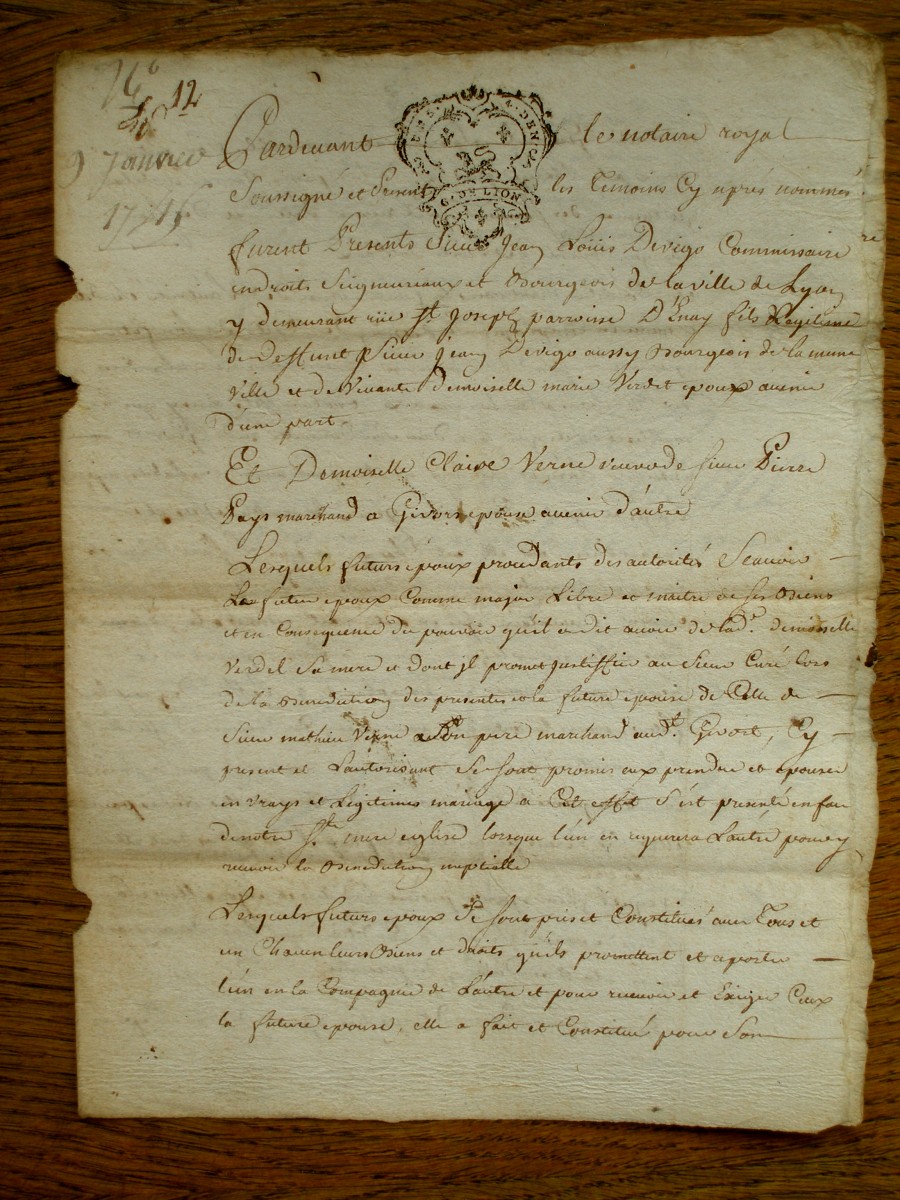 12
9 Janvier
Pardevant le notaire royal
G. DE LION
Soussigné et Presents les Temoins Cy apres nommés
furent Presents Sieur Jean Loüis Devigo Commissaire
en droits Seigneuriaux et Bourgeois de la ville de Lyon
y demeurant rüe St. Joseph parroisse D'Enay fils Legitime
de Deffunt Sieur Jean Devigo aussy Bourgeois de la meme
ville et de vivante demoiselle marie Verdet epoux avenir
d'une part.
Et Demoiselle Claire Verne veuve de sieur Pierre
Pays marchand a Givors epouse avenir d'autre
Lesquels futurs époux procedants des autorités Scavoir
Le futur epoux Comme major Libre et maitre de ses Biens
et en Consequence du pouvoir qu'il a dit avoir de lad. demoiselle
verdel Sa mere et dont jl promet justiffier au Sieur Curé lors
de la Benediction des presentes et la future epouse de Celle de
Sieur mathieu Verne Son pere marchand aud. Givors, Cy
present et L'autorisant Se sont promis eux prendre et epouser
en vrays et Légitimes mariage a Cet effet S'est presenté en face
de notre Ste. mere eglise lorsque l'un en requerera L'autre pour y
recevoir la Benediction nuptialle
Lesquels futurs epoux Se sont pris et Constitués avec Tous et
un Chacun leurs Biens et droits qu'ils promettent et aporter
l'un en la Compagnie de L'autre et pour recevoir et Exiger Ceux
la future epouse, elle a fait et Constitué pour Son